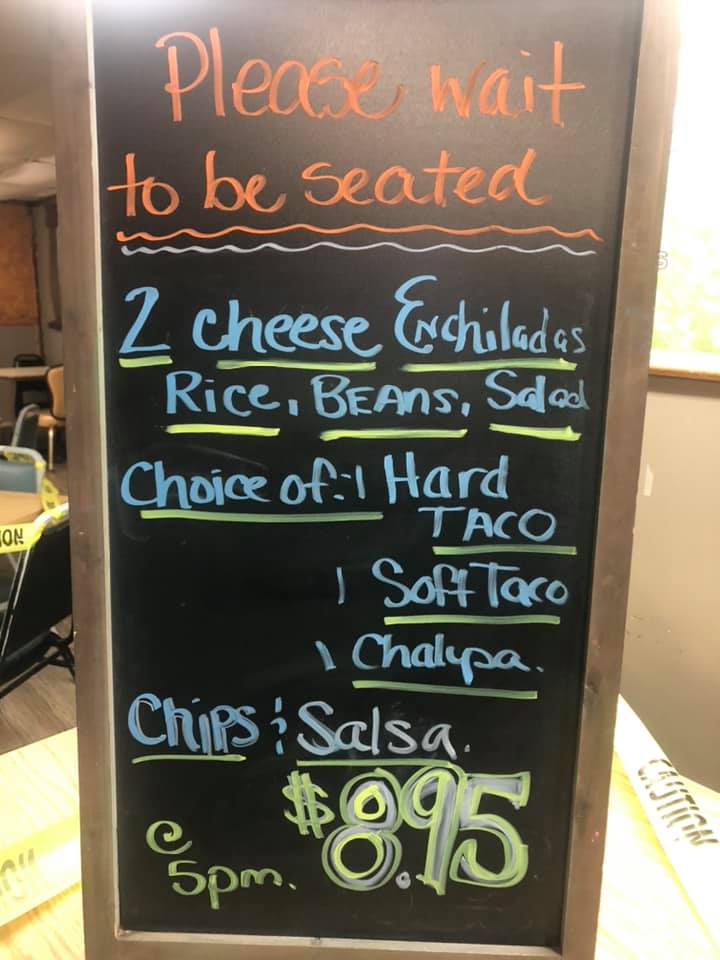 Please wait
to be seated
2 cheese Enchiladas
Rice, BEANS, Salad
Choice of: 1 Hard
TACO
1 Soft Taco
1 Chalupa.
Chips & Salsa.
$8.95
@ 5pm.
ION
CAUTION